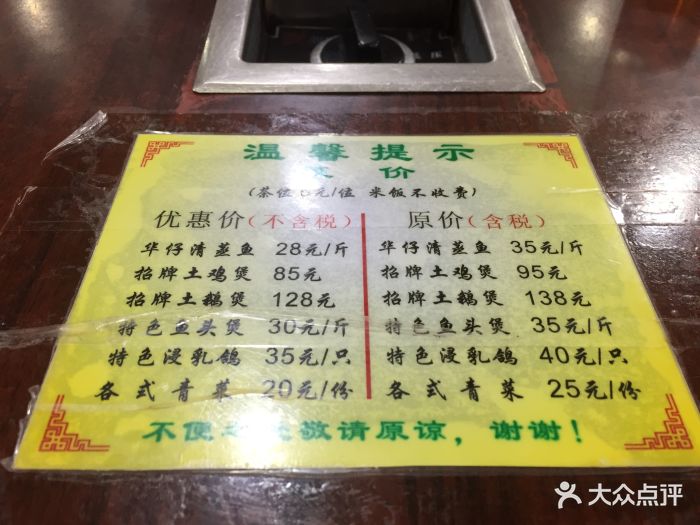 温馨提示
价
(茶位 元/位 米饭不收费)
优惠价(不含税)
华仔清蒸鱼 28元/斤
招牌土鸡煲 85元
招牌土鹅煲 128元
特色鱼头煲 30元/斤
特色浸乳鸽 35元/只
各式青菜 20元/份
原价(含税)
华仔清蒸鱼 35元/斤
招牌土鸡煲 95元
招牌土鹅煲 138元
特色鱼头煲 35元/斤
特色浸乳鸽 40元/只
各式青菜 25元/份
不便之处敬请原谅，谢谢！
大众点评